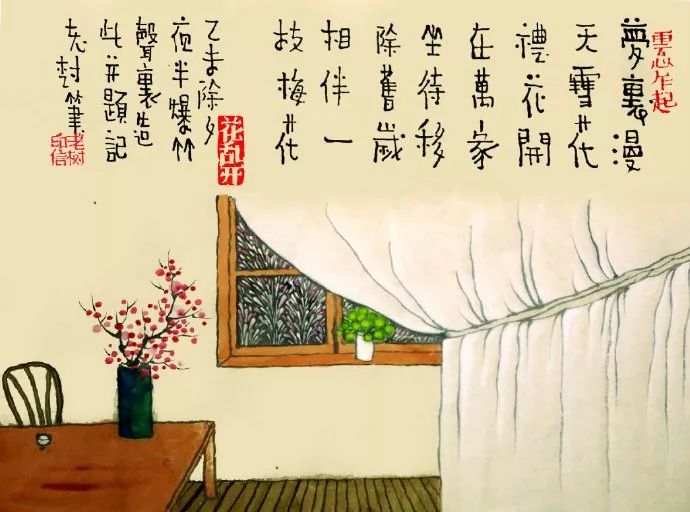 夢裏漫
天雪花
禮花開
在萬家
坐待移
除舊歲
相伴一
枝梅花
乙未除夕
夜半爆竹
聲裏造
此并題記
老樹筆
花乱开
老树印信